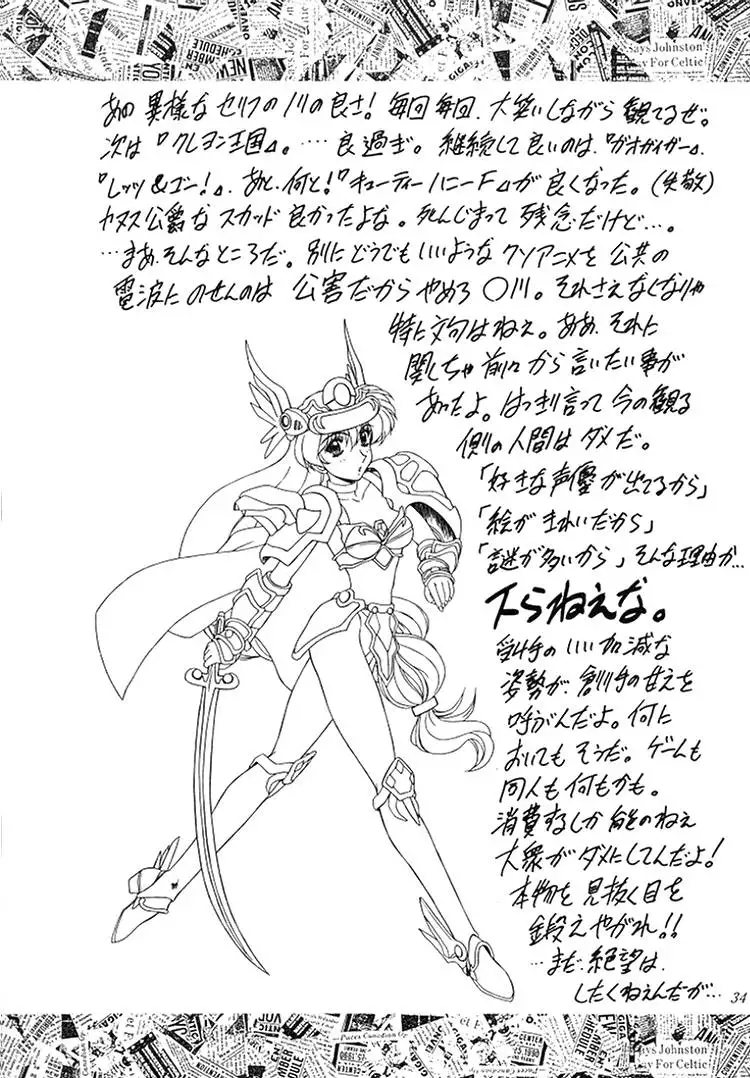 Says Johnston
ay For Celtic
あの異様なセリフのノリの良さ！毎回毎回、大笑いしながら観てるぜ。
次は『クレヨン王国』。……良過ぎ。継続して良いのは、『ガオガイガー』、
『レッツ&ゴー！』、あと、何と！『キューティーハニーF』が良くなった。（失敬）
カヌス公爵なスカッド良かったよな。死んじまって残念だけど…。
…まあ、そんなところだ。別にどうでもいいようなクソアニメを公共の
電波にのせんのは公害だからやめろ〇川。それさえなくなりゃ
特に文句はねぇ。ああ、それに
関しちゃ前々から言いたい事が
あったよ。はっきり言って今の観る
側の人間はダメだ。
「好きな声優が出てるから」
「絵がきれいだから」
「謎が多いから」そんな理由か…
下らねえな。
受け手のいい加減な
姿勢が、創り手の甘えを
呼ぶんだよ。何に
おいてもそうだ。ゲームも
同人も何もかも。
消費するしか能のねぇ
大衆がダメにしてんだよ！
本物を見抜く目を
鍛えやがれ！！
…まだ、絶望は、
したくねぇんだが…
34
Says Johnston
ay For Celtic